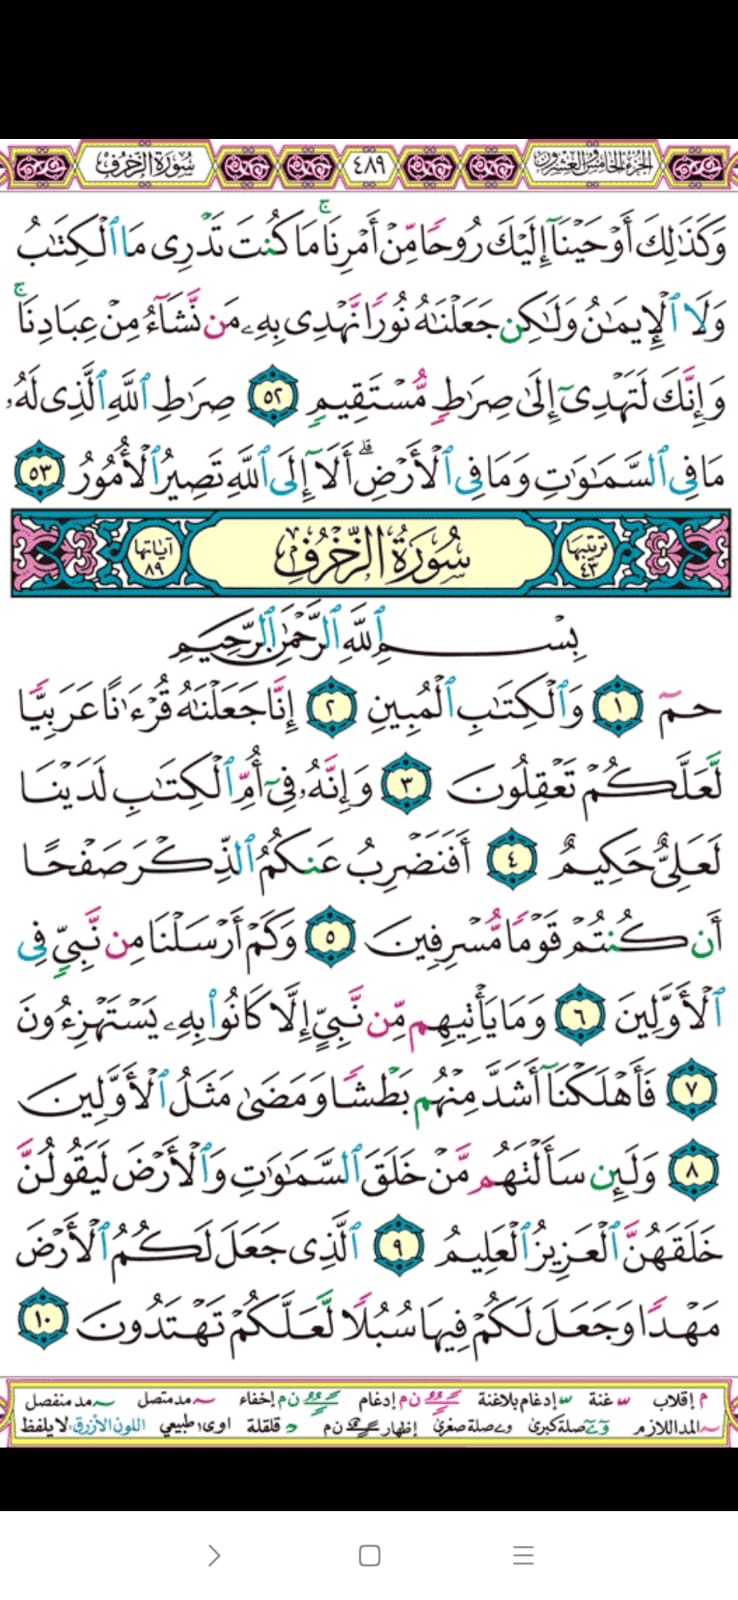 الجزء الخامس والعشرون ٤٨٩ سورة الزخرف
وَكَذَٰلِكَ أَوْحَيْنَآ إِلَيْكَ رُوحًا مِّنْ أَمْرِنَا ۚ مَا كُنتَ تَدْرِى مَا ٱلْكِتَٰبُ
وَلَا ٱلْإِيمَٰنُ وَلَٰكِن جَعَلْنَٰهُ نُورًا نَّهْدِى بِهِۦ مَن نَّشَآءُ مِنْ عِبَادِنَا ۚ
وَإِنَّكَ لَتَهْدِىٓ إِلَىٰ صِرَٰطٍ مُّسْتَقِيمٍ ٥٢ صِرَٰطِ ٱللَّهِ ٱلَّذِى لَهُۥ
مَا فِى ٱلسَّمَٰوَٰتِ وَمَا فِى ٱلْأَرْضِ ۗ أَلَآ إِلَى ٱللَّهِ تَصِيرُ ٱلْأُمُورُ ٥٣
ترتيبها ٤٣ سُورَةُ الزُّخْرُفِ آياتها ٨٩
بِسْمِ ٱللَّهِ ٱلرَّحْمَٰنِ ٱلرَّحِيمِ
حمٓ ١ وَٱلْكِتَٰبِ ٱلْمُبِينِ ٢ إِنَّا جَعَلْنَٰهُ قُرْءَٰنًا عَرَبِيًّا
لَّعَلَّكُمْ تَعْقِلُونَ ٣ وَإِنَّهُۥ فِىٓ أُمِّ ٱلْكِتَٰبِ لَدَيْنَا
لَعَلِىٌّ حَكِيمٌ ٤ أَفَنَضْرِبُ عَنكُمُ ٱلذِّكْرَ صَفْحًا
أَن كُنتُمْ قَوْمًا مُّسْرِفِينَ ٥ وَكَمْ أَرْسَلْنَا مِن نَّبِىٍّ فِى
ٱلْأَوَّلِينَ ٦ وَمَا يَأْتِيهِم مِّن نَّبِىٍّ إِلَّا كَانُوا۟ بِهِۦ يَسْتَهْزِءُونَ
٧ فَأَهْلَكْنَآ أَشَدَّ مِنْهُم بَطْشًا وَمَضَىٰ مَثَلُ ٱلْأَوَّلِينَ
٨ وَلَئِن سَأَلْتَهُم مَّنْ خَلَقَ ٱلسَّمَٰوَٰتِ وَٱلْأَرْضَ لَيَقُولُنَّ
خَلَقَهُنَّ ٱلْعَزِيزُ ٱلْعَلِيمُ ٩ ٱلَّذِى جَعَلَ لَكُمُ ٱلْأَرْضَ
مَهْدًا وَجَعَلَ لَكُمْ فِيهَا سُبُلًا لَّعَلَّكُمْ تَهْتَدُونَ ١٠
م إقلاب غنة إدغام بلاغنة ن م إدغام ن م إخفاء مد متصل مد منفصل
المد اللازم صلة كبرى صلة صغرى إظهار ن م قلقلة اوى طبيعي اللون الأزرق، لا يلفظ